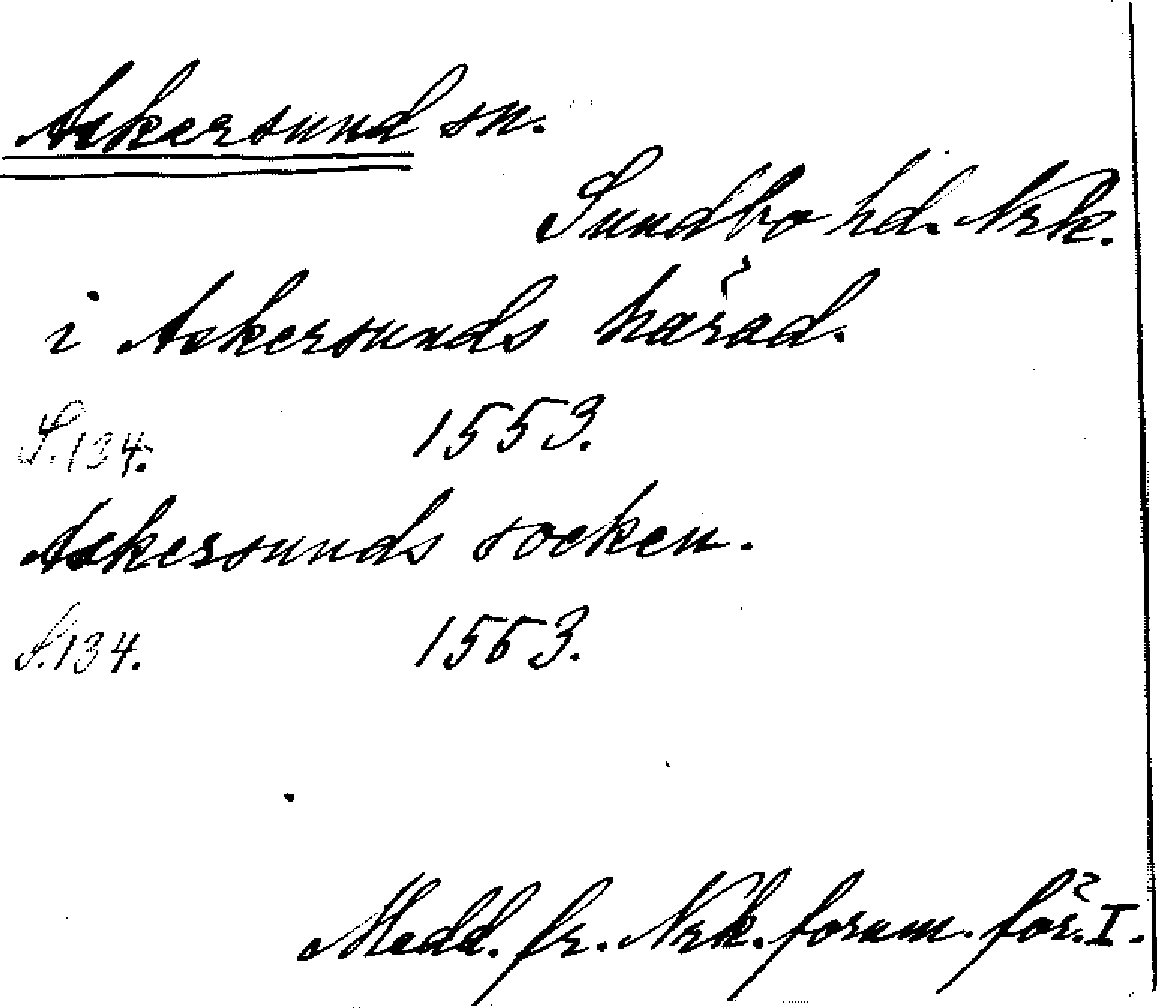 Askersund sn.
Sundbo hd. Nrk.
i Askersunds härad.
S. 134. 1553.
Askersunds socken.
S. 134. 1563.
Medd. fr. Nrk. fornm. för. I.